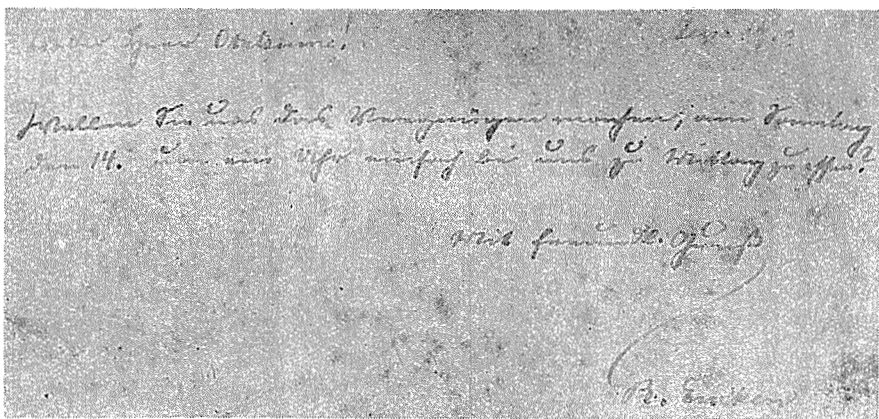 Herr
Wollen Sie uns das Vergnügen machen, am Sonntag
den 14. um ein Uhr einfach bei uns zu Mittag zu essen?
Mit freundl. Gruß
R. Eucken